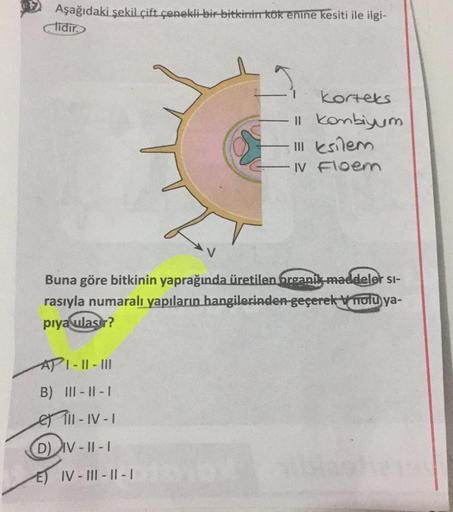 Aşağıdaki şekil çift çenekli bir bitkinin kök enine kesiti ile ilgi-
lidir.
I korteks
II kombiyum
III ksilem
IV Floem
V
Buna göre bitkinin yaprağında üretilen organik maddeler sı-
rasıyla numaralı yapıların hangilerinden geçerek V nolu ya-
pıya ulaşır?
A) I - II - III
B) III - II - I
C) III - IV - I
D) IV - II - I
E) IV - III - II - I